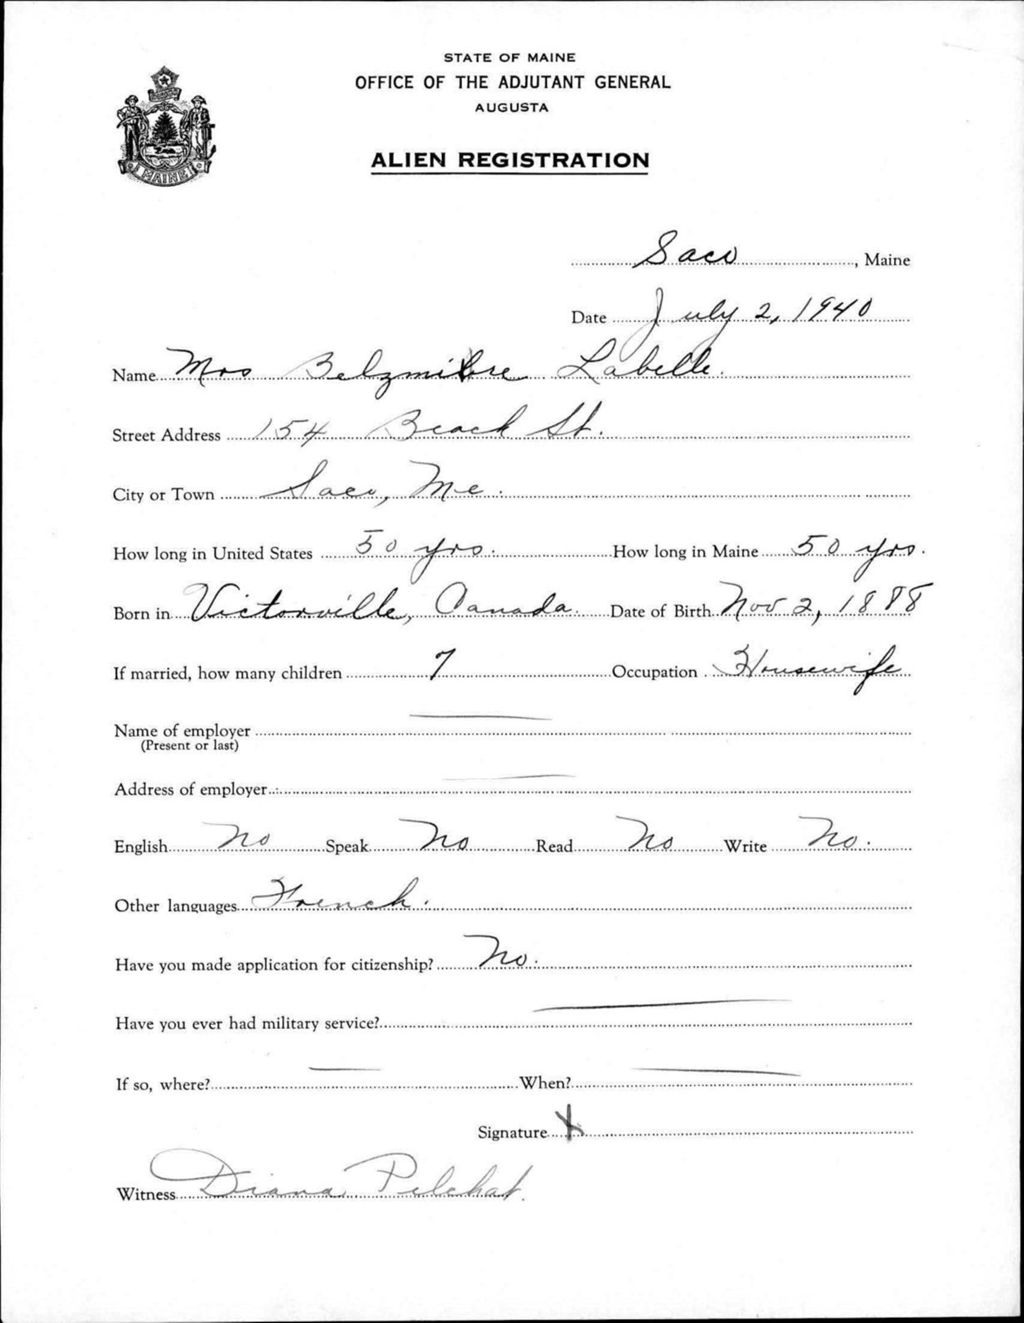 STATE OF MAINE
OFFICE OF THE ADJUTANT GENERAL
AUGUSTA
ALIEN REGISTRATION
MAINE
Saco, Maine
Date July 2, 1940
Name Mrs Labelle.
Street Address 154 Beach St.
City or Town Saco, Me.
How long in United States 50 yrs. How long in Maine 50 yrs.
Born in Victorville, Canada. Date of Birth Nov 2, 1888
If married, how many children 7 Occupation Housewife
Name of employer
(Present or last)
Address of employer
English No Speak No Read No Write No.
Other languages French.
Have you made application for citizenship? No.
Have you ever had military service?
If so, where? When?
Signature X
Witness Diana Pelchat.